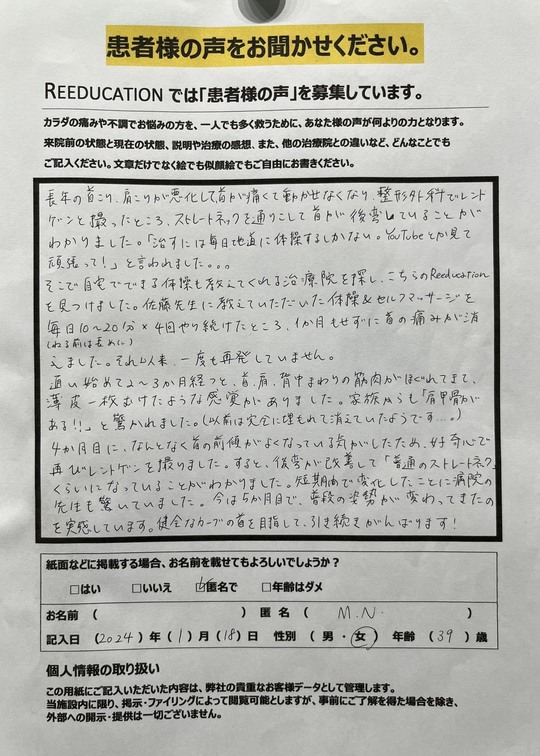 患者様の声をお聞かせください。
REEDUCATION では「患者様の声」を募集しています。
カラダの痛みや不調でお悩みの方を、一人でも多く救うために、あなた様の声が何よりの力となります。
来院前の状態と現在の状態、説明や治療の感想、また、他の治療院との違いなど、どんなことでも
ご記入ください。文章だけでなく絵でも似顔絵でもご自由にお書きください。
長年の首こり、肩こりが悪化して首が痛くて動かせなくなり、整形外科でレント
ゲンを撮ったところ、ストレートネックを通りこして首が後弯していることが
わかりました。「治すには毎日地道に体操するしかない。YouTubeとか見て
頑張って!」と言われました。。。
そこで自宅でできる体操も教えてくれる治療院を探し、こちらのReeducation
を見つけました。佐藤先生に教えていただいた体操&セルフマッサージを
毎日10〜20分×4回やり続けたところ、1か月もせずに首の痛みが消
(ねる前は長めに)
えました。それ以来、一度も再発していません。
通い始めて2〜3か月経つと、首、肩、背中まわりの筋肉がほぐれてきて、
薄皮一枚むけたような感覚がありました。家族からも「肩甲骨が
ある!!」と驚かれました。(以前は完全に埋もれて消えていたようです…。)
4か月目に、なんとなく首の前傾がよくなっている気がしたため、好奇心で
再びレントゲンを撮りました。すると、後弯が改善して「普通のストレートネック」
くらいになっていることがわかりました。短期間で変化したことに病院の
先生も驚いていました。今は5か月目で、普段の姿勢が変わってきたの
を実感しています。健全なカーブの首を目指して、引き続きがんばります!
紙面などに掲載する場合、お名前を載せてもよろしいでしょうか?
□はい □いいえ ☑匿名で □年齢はダメ
お名前 ( ) 匿名 ( M.N. )
記入日 (2024) 年 (1) 月 (18) 日 性別 (男・女) 年齢 (39) 歳
個人情報の取り扱い
この用紙にご記入いただいた内容は、弊社の貴重なお客様データとして管理します。
当施設内に限り、掲示・ファイリングによって閲覧可能としますが、事前にご了解を得た場合を除き、
外部への開示・提供は一切ございません。